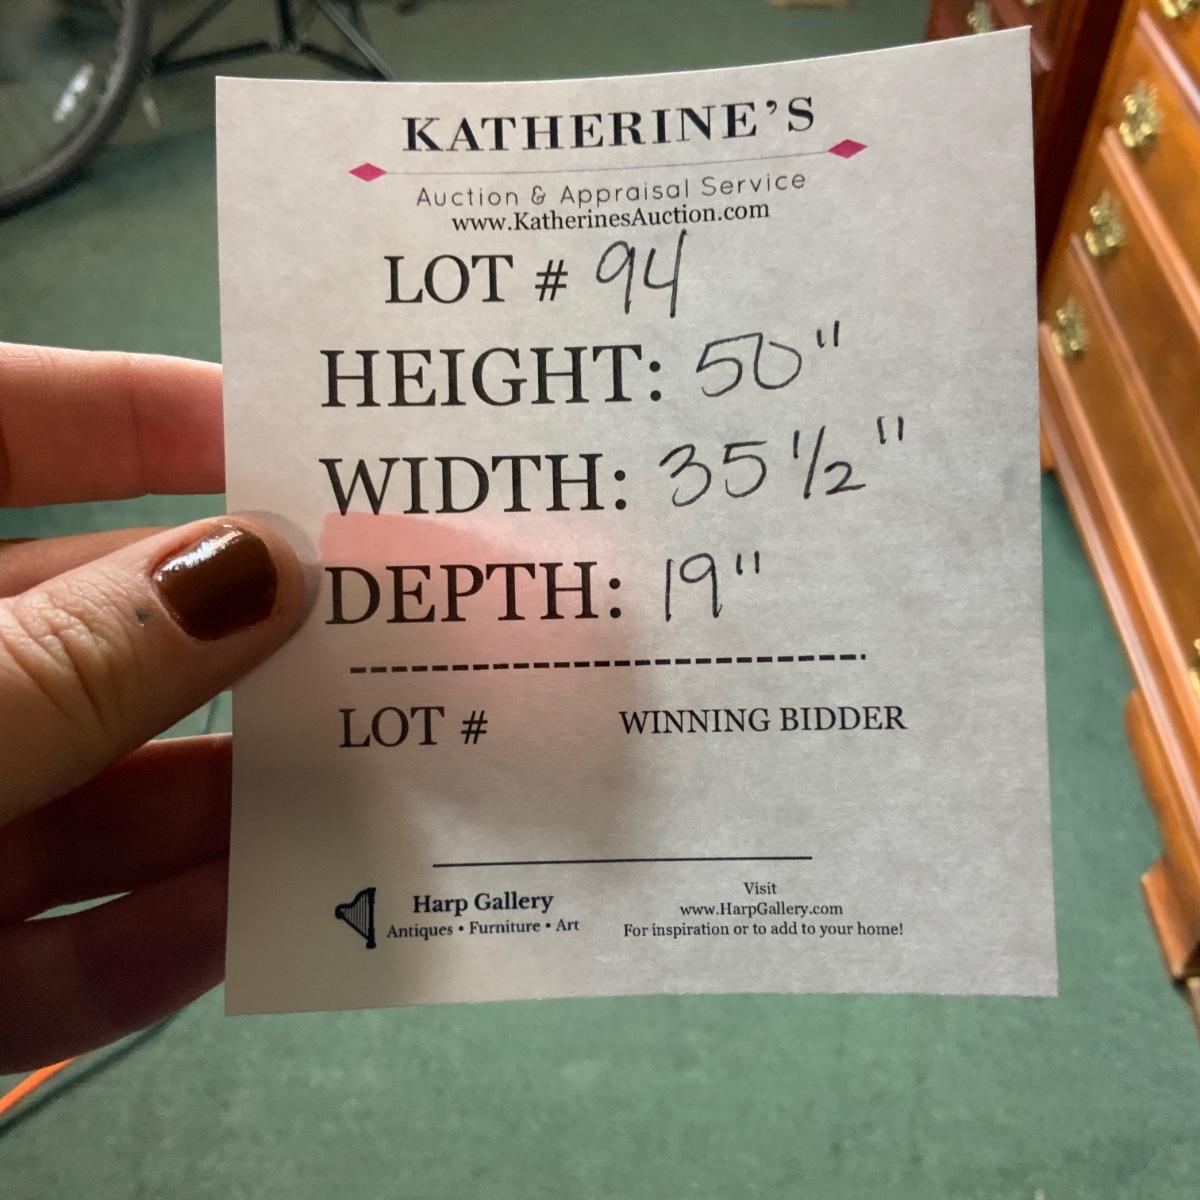 KATHERINE'S
Auction & Appraisal Service
www.KatherinesAuction.com
LOT # 94
HEIGHT: 50"
WIDTH: 35 1/2"
DEPTH: 19"
--------------------------------.
LOT # WINNING BIDDER
Harp Gallery
Antiques • Furniture • Art
Visit
www.HarpGallery.com
For inspiration or to add to your home!